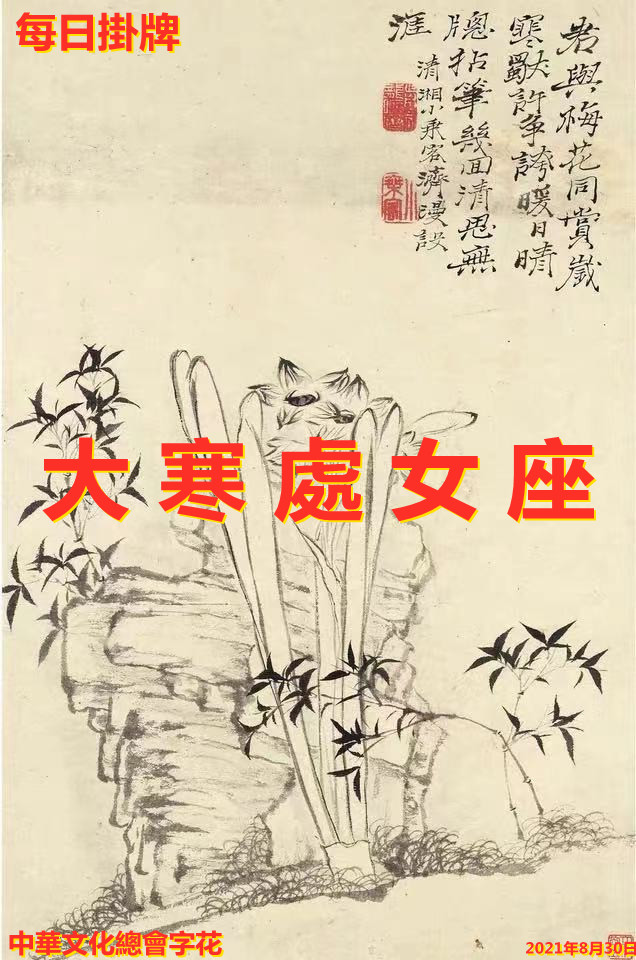 每日掛牌
君與梅花同賞歲
寒獨許爭誇暖日晴
牕拈筆幾回清思無
涯
清湘小乘客濟漫設
大寒處女座
中華文化總會字花
2021年8月30日